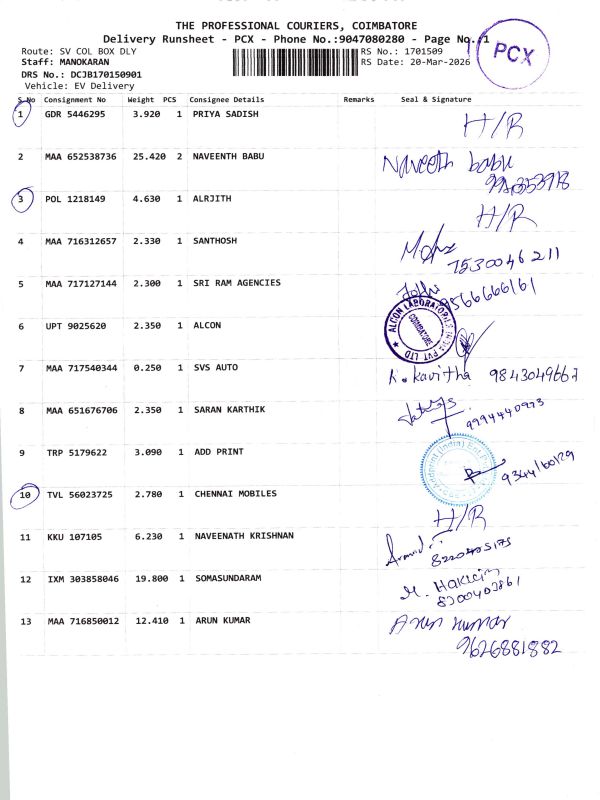 THE PROFESSIONAL COURIERS, COIMBATORE
Delivery Runsheet - PCX - Phone No.:9047080280 - Page No. 1
PCX
Route: SV COL BOX DLY
RS No.: 1701509
Staff: MANOKARAN
RS Date: 20-Mar-2026
DRS No.: DCJB170150901
Vehicle: EV Delivery
S.No Consignment No Weight PCS Consignee Details Remarks Seal & Signature
1 GDR 5446295 3.920 1 PRIYA SADISH H/R
2 MAA 652538736 25.420 2 NAVEENTH BABU Naveeth babu
3 POL 1218149 4.630 1 ALRJITH H/R
4 MAA 716312657 2.330 1 SANTHOSH
7530046211
5 MAA 717127144 2.300 1 SRI RAM AGENCIES
9566666161
6 UPT 9025620 2.350 1 ALCON ALCON LABORATORIES PVT LTD COIMBATORE
7 MAA 717540344 0.250 1 SVS AUTO K. Kavitha 9843049667
8 MAA 651676706 2.350 1 SARAN KARTHIK
9994440973
9 TRP 5179622 3.090 1 ADD PRINT
10 TVL 56023725 2.780 1 CHENNAI MOBILES H/R
11 KKU 107105 6.230 1 NAVEENATH KRISHNAN
12 IXM 303858046 19.800 1 SOMASUNDARAM
13 MAA 716850012 12.410 1 ARUN KUMAR Arun kumar
9626881882